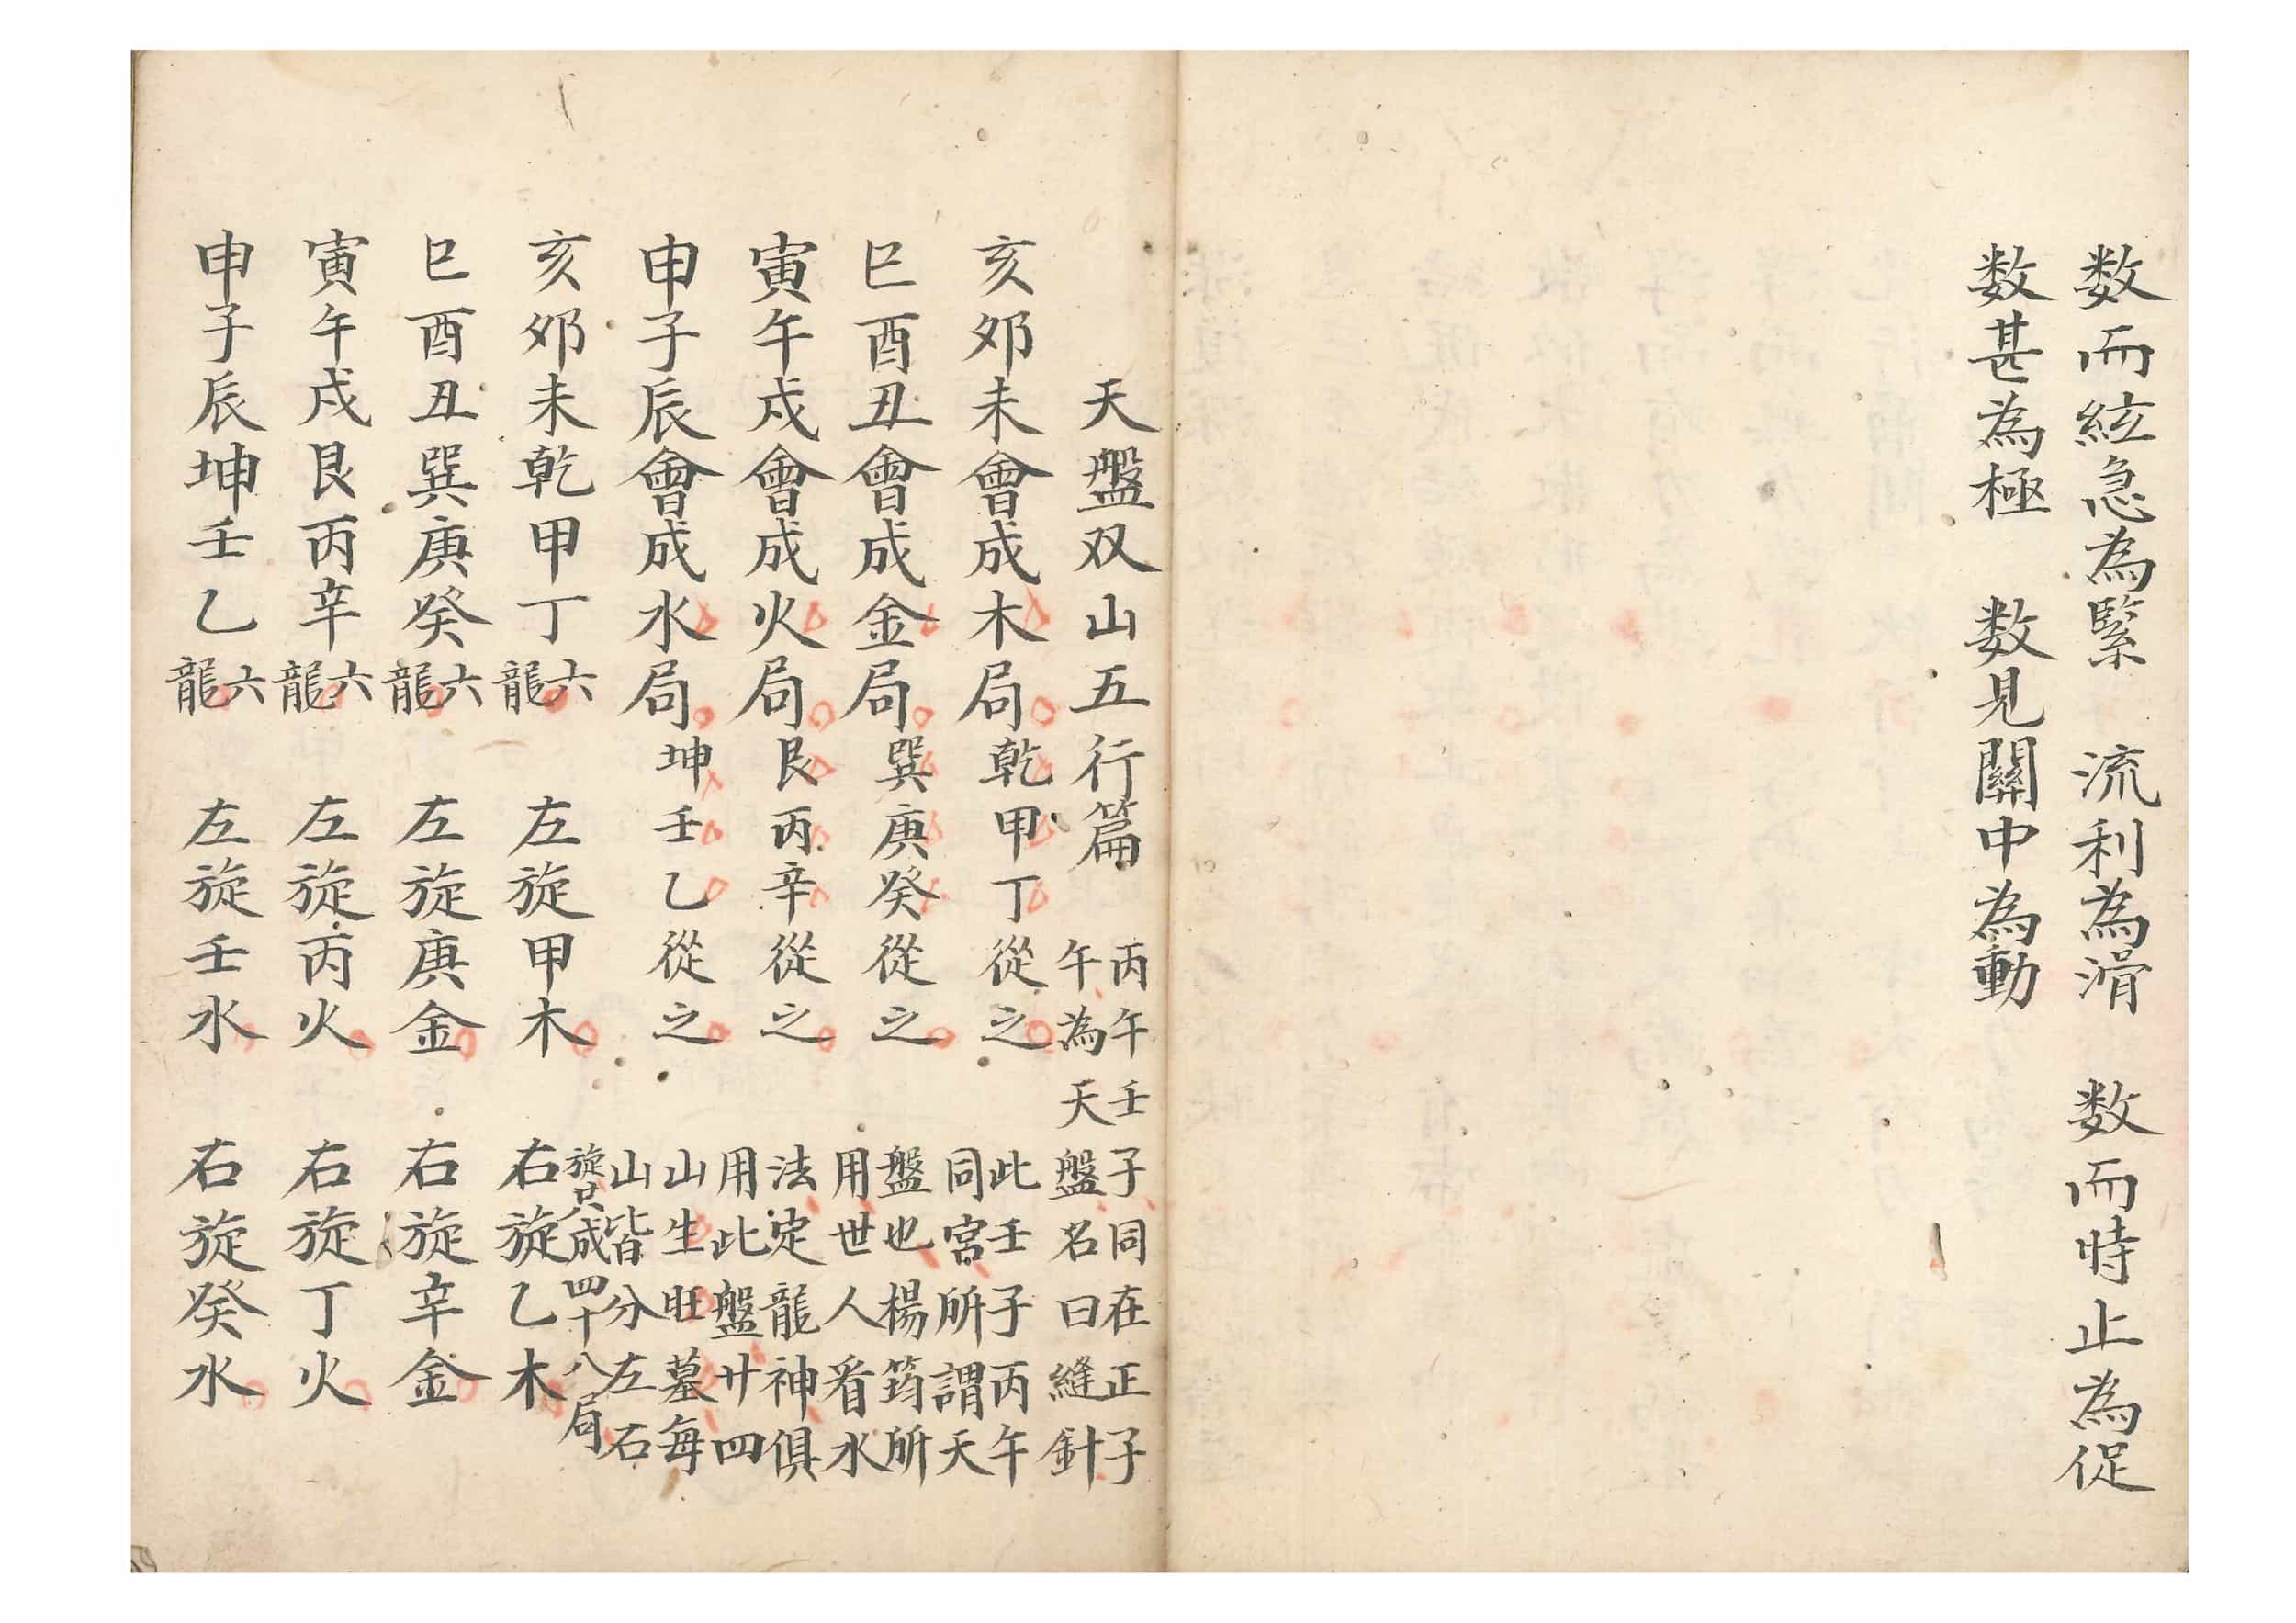 数而絃急為緊　流利為滑　数而時止為促
数甚為極　数見關中為動
天盤双山五行篇　丙午壬子同在正子
午為天盤名曰縫針
亥夘未會成木局乾甲丁從之　此壬子丙午
同宮所謂天
巳酉丑會成金局巽庚癸從之　盤也楊筠所
用世人看水
寅午戌會成火局艮丙辛從之　法定龍神俱
用此盤廿四
申子辰會成水局坤壬乙從之　山生旺墓每
山皆分左石
旋只成四十八局
亥夘未乾甲丁六龍　左旋甲木　右旋乙木
巳酉丑巽庚癸六龍　左旋庚金　右旋辛金
寅午戌艮丙辛六龍　左旋丙火　右旋丁火
申子辰坤壬乙六龍　左旋壬水　右旋癸水